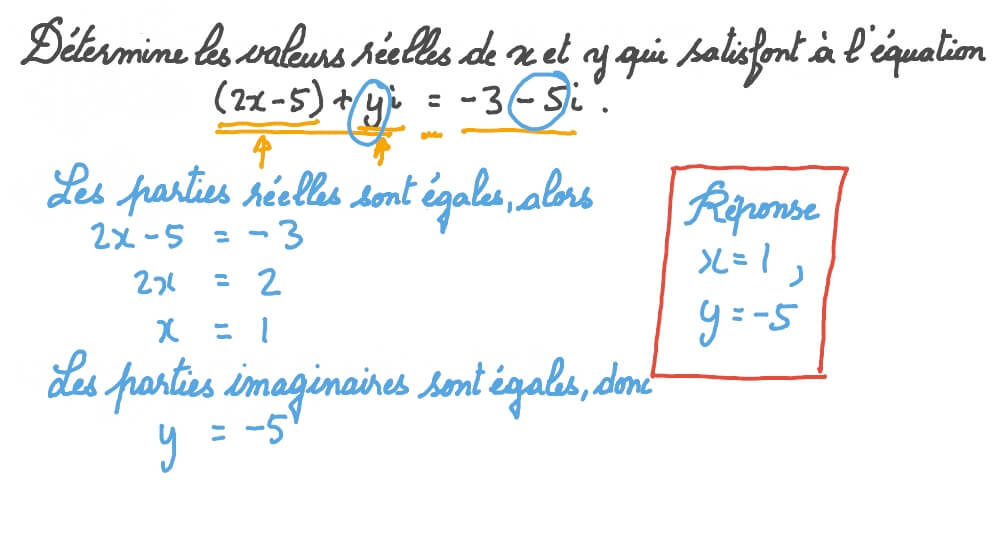 Détermine les valeurs réelles de x et y qui satisfont à l'équation
(2x-5) + yi = -3 -5i .
Les parties réelles sont égales, alors
2x-5 = -3
2x = 2
x = 1
Les parties imaginaires sont égales, donc
y = -5
Réponse
x = 1 ,
y = -5